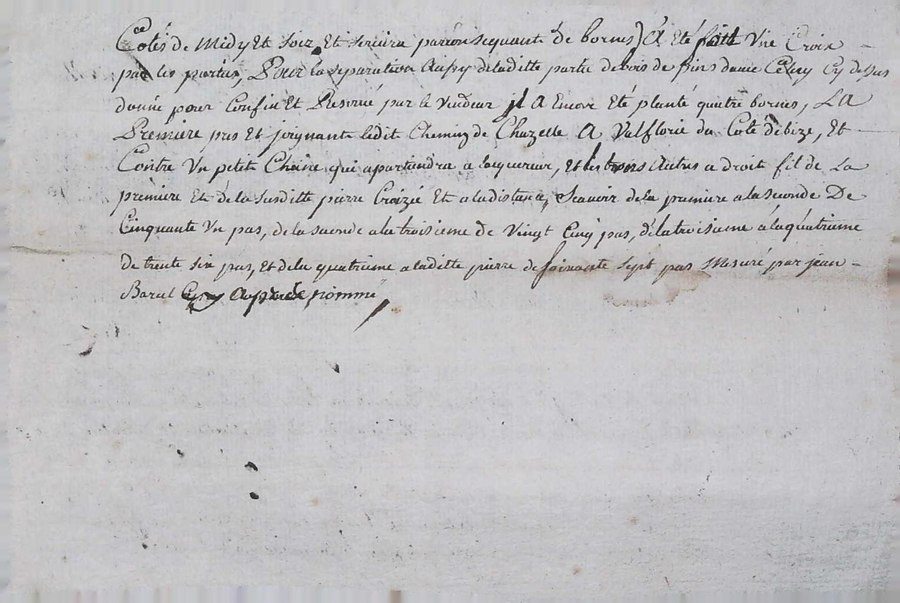 Cotés de Midy Et soir Et servira par consequant de bornes) A Eté faitt Vne Croix
par les parties, Pour la separation Aussy de laditte partie de bois de pins d'avec Celuy Cy dessus
donné pour Confin Et Reservé par le Vendeur jl A Encore Eté planté quatre bornes, LA
Premiere pas Et joignante ledit Chemin de Chazelle A Valflorie du Coté de bize, Et
Contre Vn petit Chaine qui apartiendra a lacquereur, Et les trois Autres a droit fil de La
premiere Et de la susditte pierre Croizée Et a la distance, Scavoir de la premiere a la seconde De
Cinquante Vn pas, de la seconde a la troisieme de Vingt Cinq pas, de la troisieme a la quatrieme
de trente six pas, et de la quatrieme a laditte pierre de soixante sept pas Mesuré par jean
Barul Cy Apres nommé